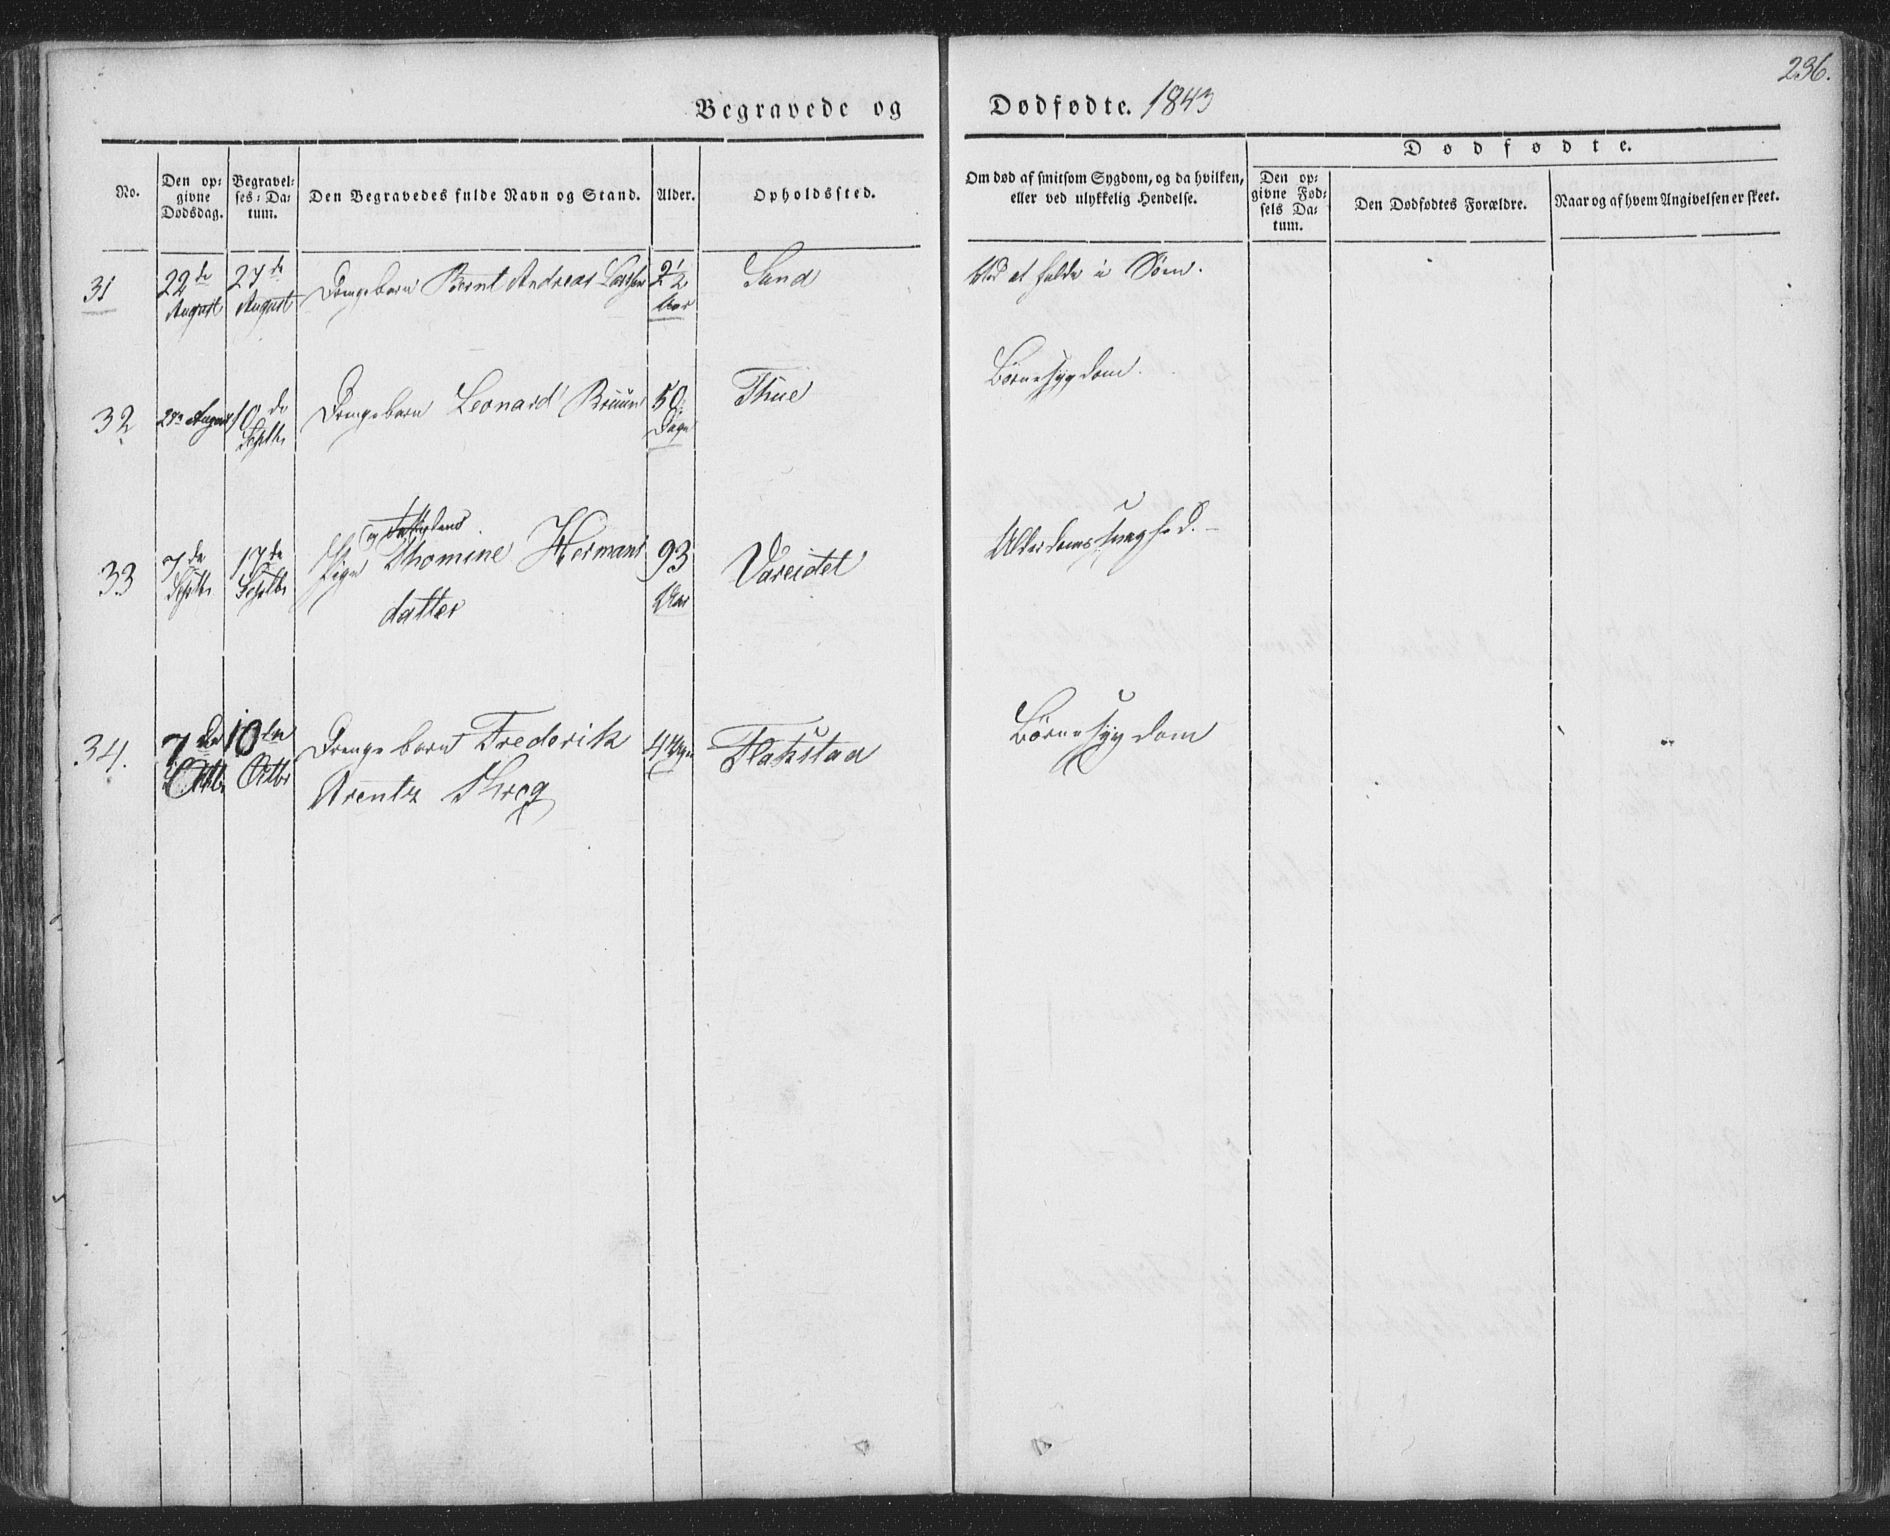 236.
Begravede og Dødfødte. 1843
Dødfødte.
No.
Den op=
givne
Dødsdag.
Begravel=
ses=Da=
tum.
Den Begravedes fulde Navn og Stand.
Alder.
Opholdssted.
Om død af smitsom Sygdom, og da hvilken,
eller ved ulykkelig Hendelse.
Den op=
givne Fød=
sels Da=
tum.
Den Dødfødtes Forældre.
Naar og af hvem Angivelsen er skeet.
31 22de 27de Drengebarn Bernt Andreas Larsen 2½ Sand Ved at falde i Søen.
August August Aar
32 28de August 10de Drengebarn Leonard Bruun 50 Thue Børnesygdom.
Septbr Dage
og
33 7de 17de Pige Thomine Hermans 93 Vareidet Alderdomssvaghed.
Septbr Septbr datter Aar
34. 7de 10de Drengebarn Frederik 4 Uger Flakstad Børnesygdom
Octbr Octbr Arentz Throg